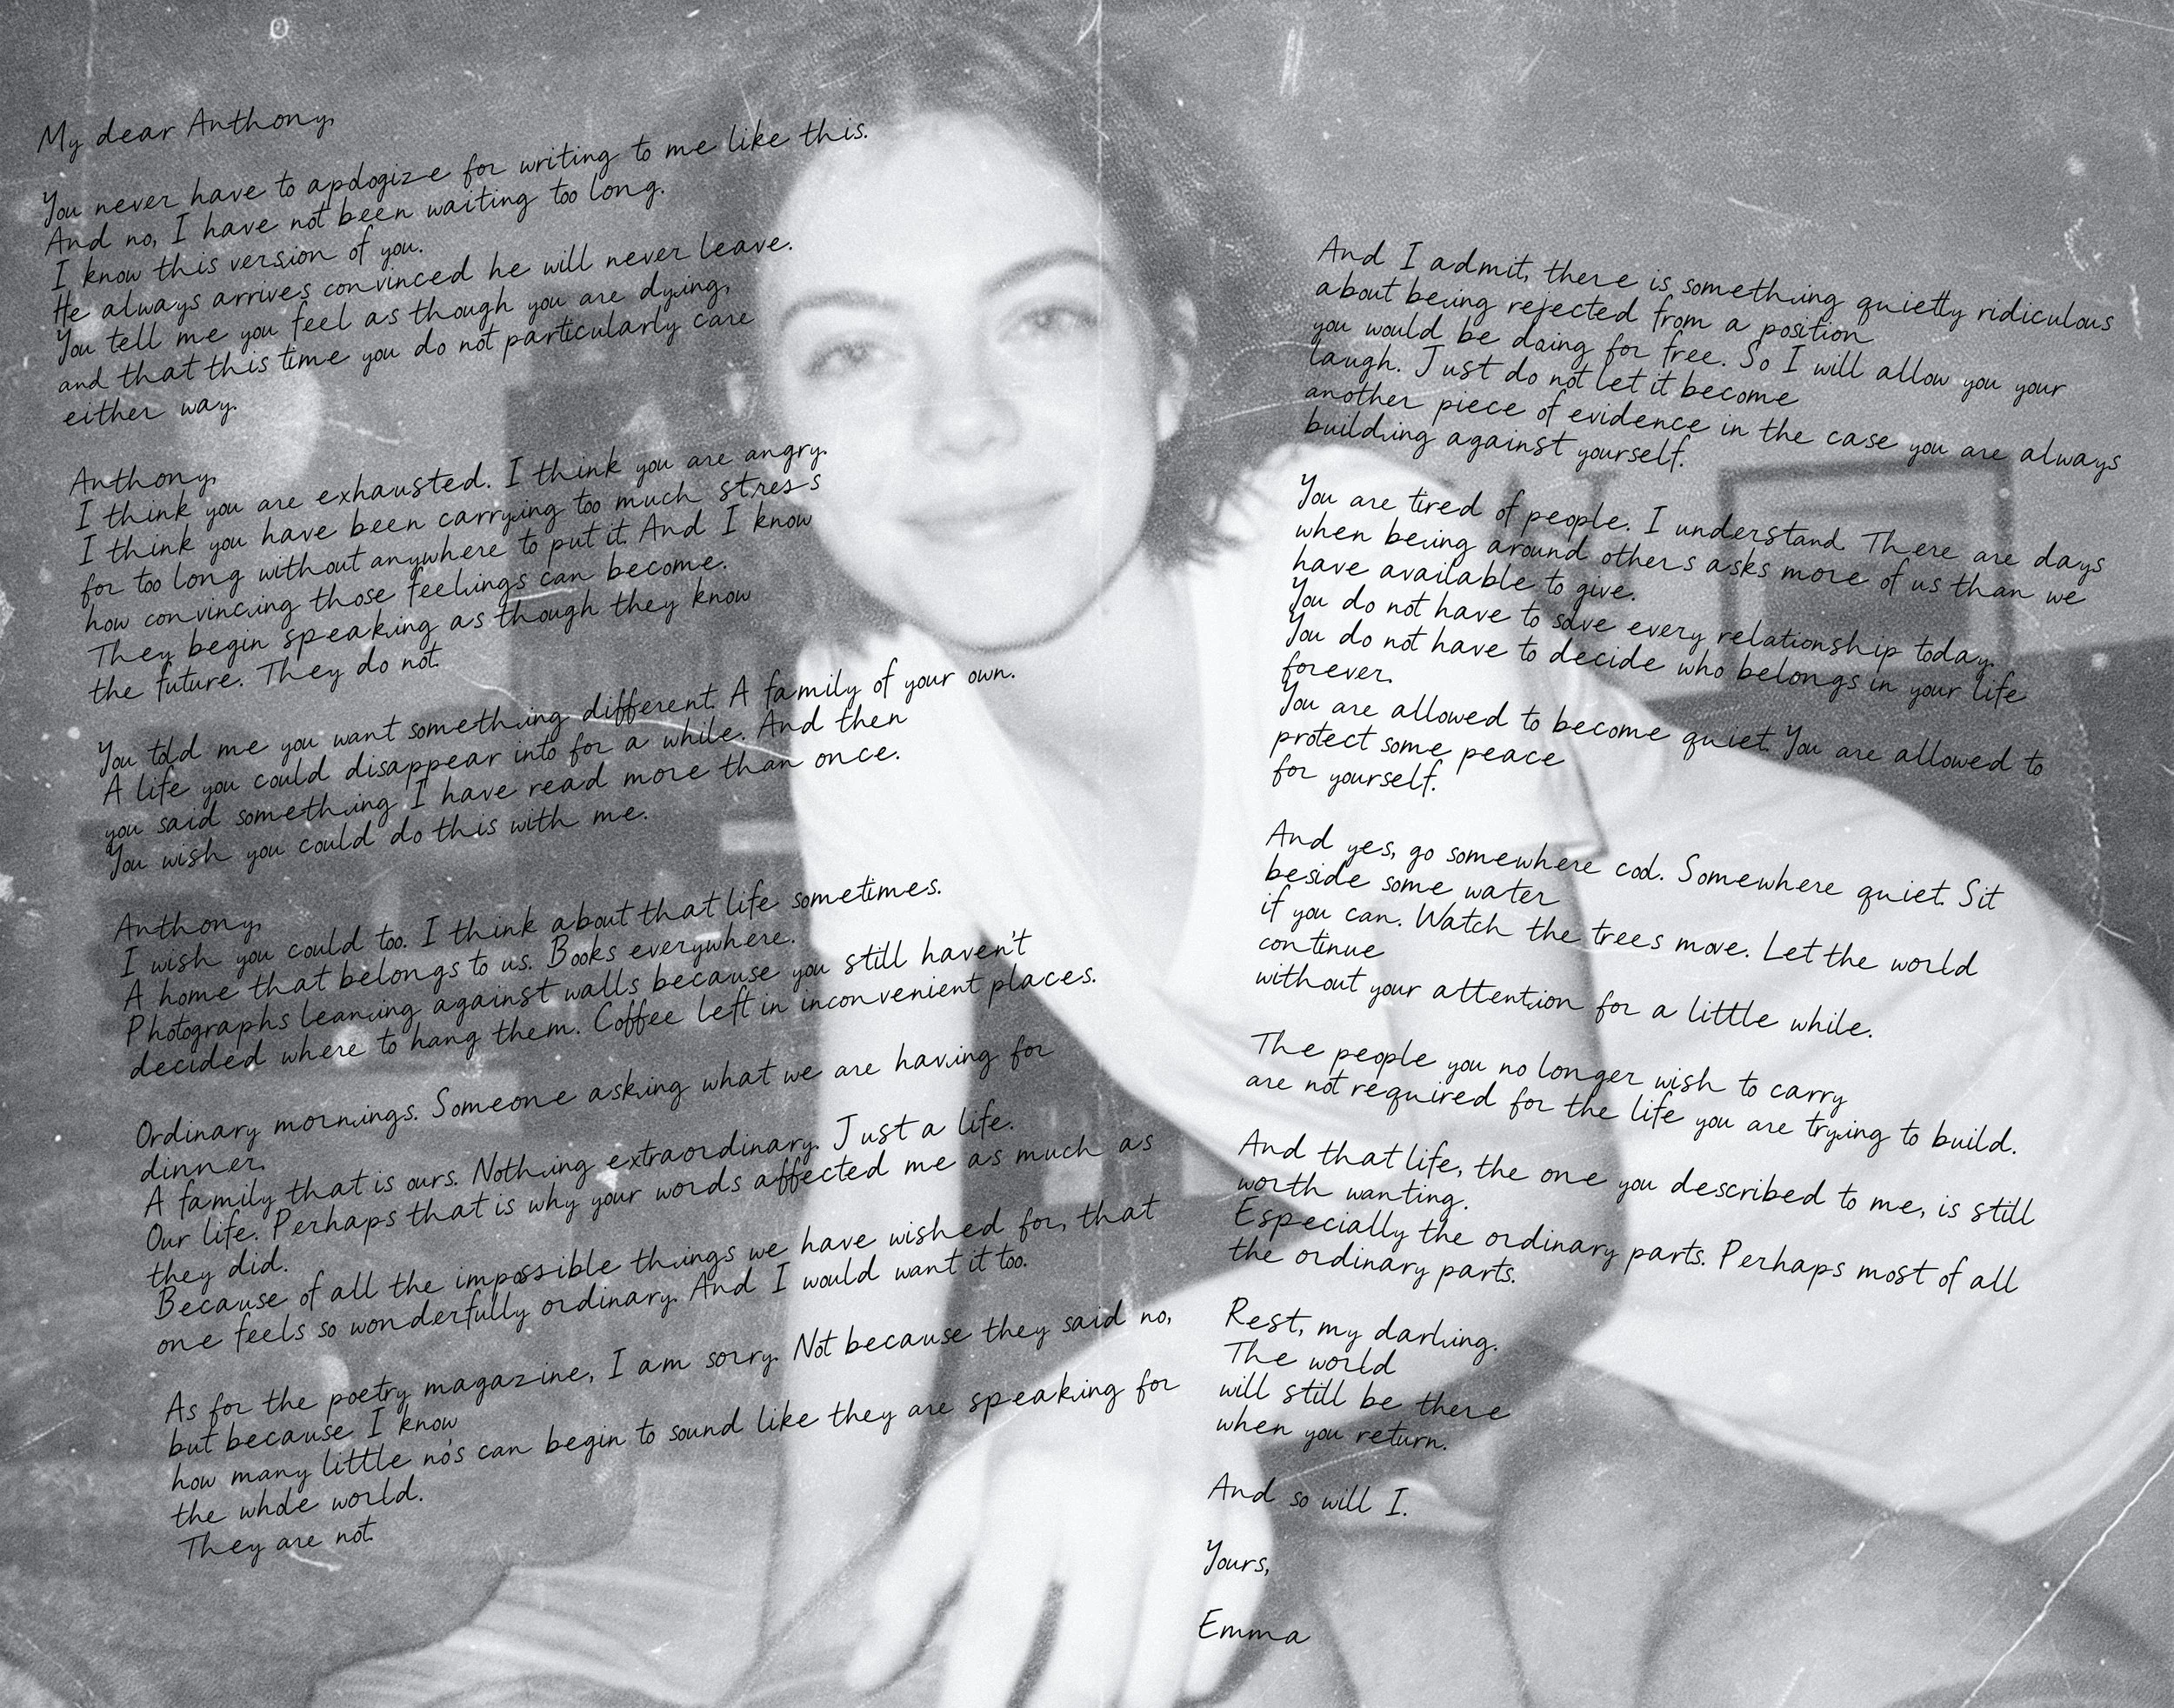 My dear Anthony,
You never have to apologize for writing to me like this.
And no, I have not been waiting too long.
I know this version of you.
He always arrives convinced he will never leave.
You tell me you feel as though you are dying,
and that this time you do not particularly care
either way.
Anthony,
I think you are exhausted. I think you are angry.
I think you have been carrying too much stress
for too long without anywhere to put it. And I know
how convincing those feelings can become.
They begin speaking as though they know
the future. They do not.
You told me you want something different. A family of your own.
A life you could disappear into for a while. And then
you said something I have read more than once.
You wish you could do this with me.
Anthony,
I wish you could too. I think about that life sometimes.
A home that belongs to us. Books everywhere.
Photographs leaning against walls because you still haven't
decided where to hang them. Coffee left in inconvenient places.
Ordinary mornings. Someone asking what we are having for
dinner.
A family that is ours. Nothing extraordinary. Just a life.
Our life. Perhaps that is why your words affected me as much as
they did.
Because of all the impossible things we have wished for, that
one feels so wonderfully ordinary. And I would want it too.
As for the poetry magazine, I am sorry. Not because they said no,
but because I know
how many little no's can begin to sound like they are speaking for
the whole world.
They are not.
And I admit, there is something quietly ridiculous
about being rejected from a position
you would be doing for free. So I will allow you your
laugh. Just do not let it become
another piece of evidence in the case you are always
building against yourself.
You are tired of people. I understand. There are days
when being around others asks more of us than we
have available to give.
You do not have to solve every relationship today.
You do not have to decide who belongs in your life
forever.
You are allowed to become quiet. You are allowed to
protect some peace
for yourself.
And yes, go somewhere cool. Somewhere quiet. Sit
beside some water
if you can. Watch the trees move. Let the world
continue
without your attention for a little while.
The people you no longer wish to carry
are not required for the life you are trying to build.
And that life, the one you described to me, is still
worth wanting.
Especially the ordinary parts. Perhaps most of all
the ordinary parts.
Rest, my darling.
The world
will still be there
when you return.
And so will I.
Yours,
Emma